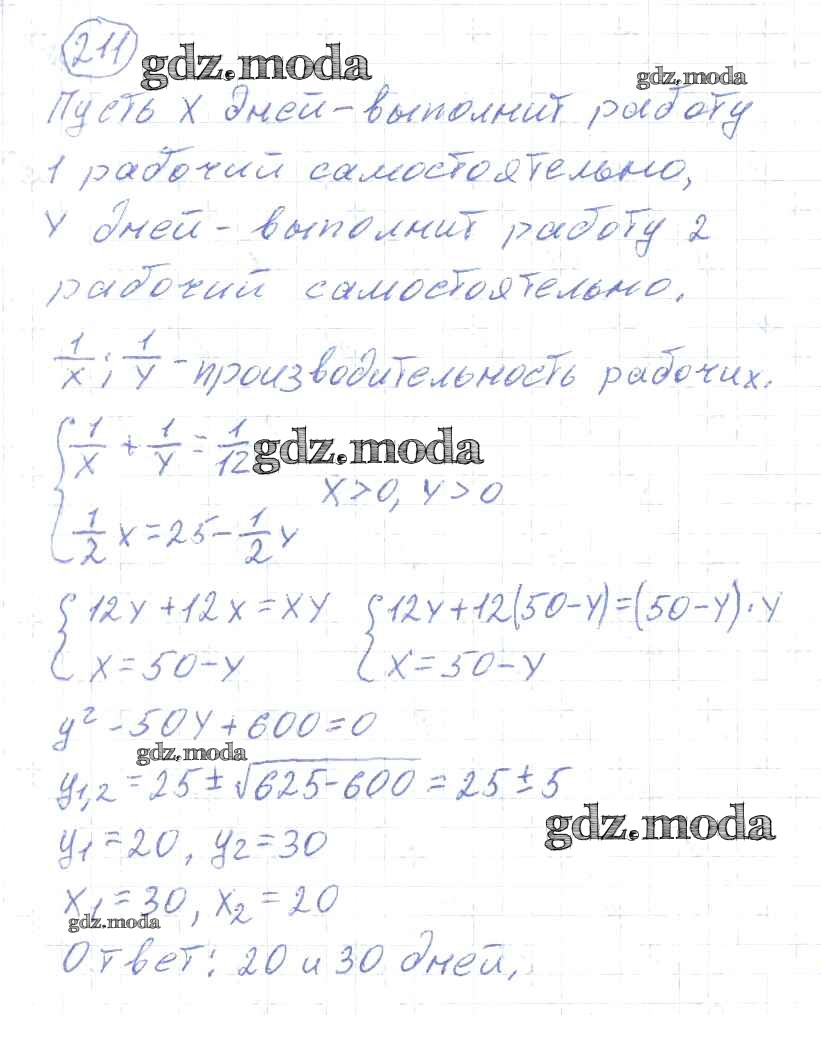 211 gdz.moda gdz.moda
Пусть X дней - выполнит работу
1 рабочий самостоятельно,
Y дней - выполнит работу 2
рабочий самостоятельно.
1/X ; 1/Y - производительность рабочих.
{ 1/X + 1/Y = 1/12 gdz.moda
X > 0, Y > 0
1/2 X = 25 - 1/2 Y
{ 12Y + 12X = XY { 12Y + 12(50 - Y) = (50 - Y) · Y
X = 50 - Y X = 50 - Y
y² - 50Y + 600 = 0
gdz.moda
y₁,₂ = 25 ± √625 - 600 = 25 ± 5
gdz.moda
y₁ = 20, y₂ = 30
X₁ = 30, X₂ = 20
gdz.moda
Ответ: 20 и 30 дней.